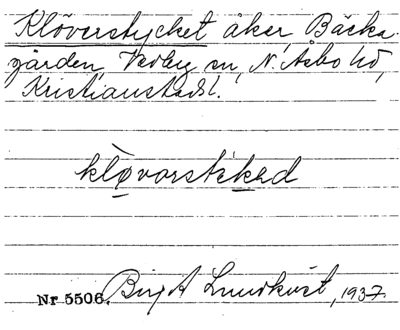 Klöverstycket åker, Bäcka-
gården, Vedby sn, N. Åsbo hd,
Kristianstads l.
kl̀ǫvǫrstikəd
Nr 5506. Birgit Lundkvist, 1937.